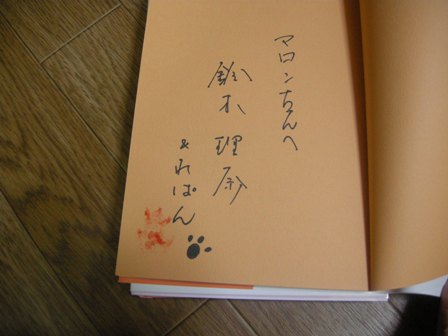 マロンちゃんへ
鈴木理紗
&れぱん